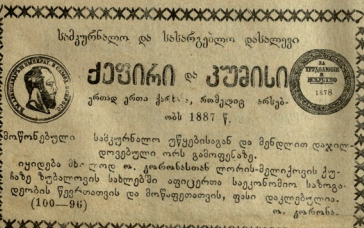 სამკურნალო და სასარგებლო დასალევი
ქეფირი და კუმისი
ერთად ერთი ქარხანა, რომელიც არსებ-
ობს 1887 წ.
ЗА
1878
მოწონებული სამკურნალო უწყებისაგან და მენდლით დაჯილ-
დოვებული ორს გამოფენაზე.
იყიდება მხოლოდ ო. კორონასთან ლორის-მელიქოვის ქუ-
ჩაზე ზუბალოვის სახლებში აფიცერთა საეკონომიო საზოგა-
დეობის წევრთათვის და მოწაფეთათვის, ფასი დაკლებულია.
(100—96) ო. კორონა.